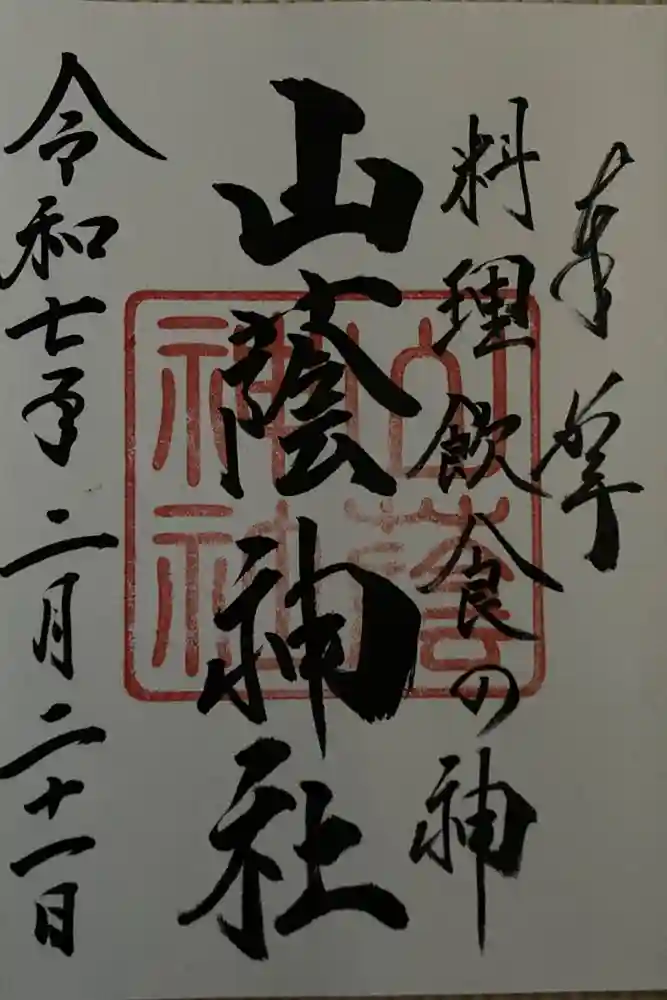 奉拝
料理飲食の神
山蔭神社
令和七年二月二十一日
山蔭
神社